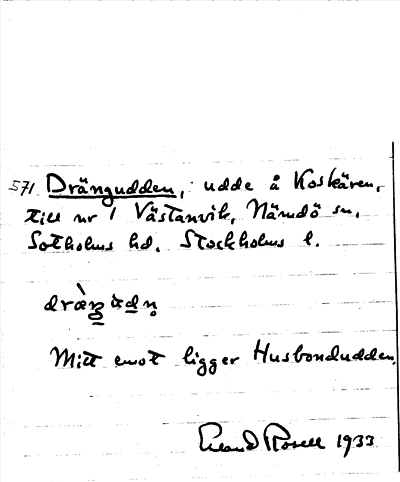 571. Drängudden, udde å Koskären,
till nr 1 Västanvik, Nämdö sn.
Sotholms hd. Stockholms l.
Mitt emot ligger Husbondudden.
Erland Rosell 1933